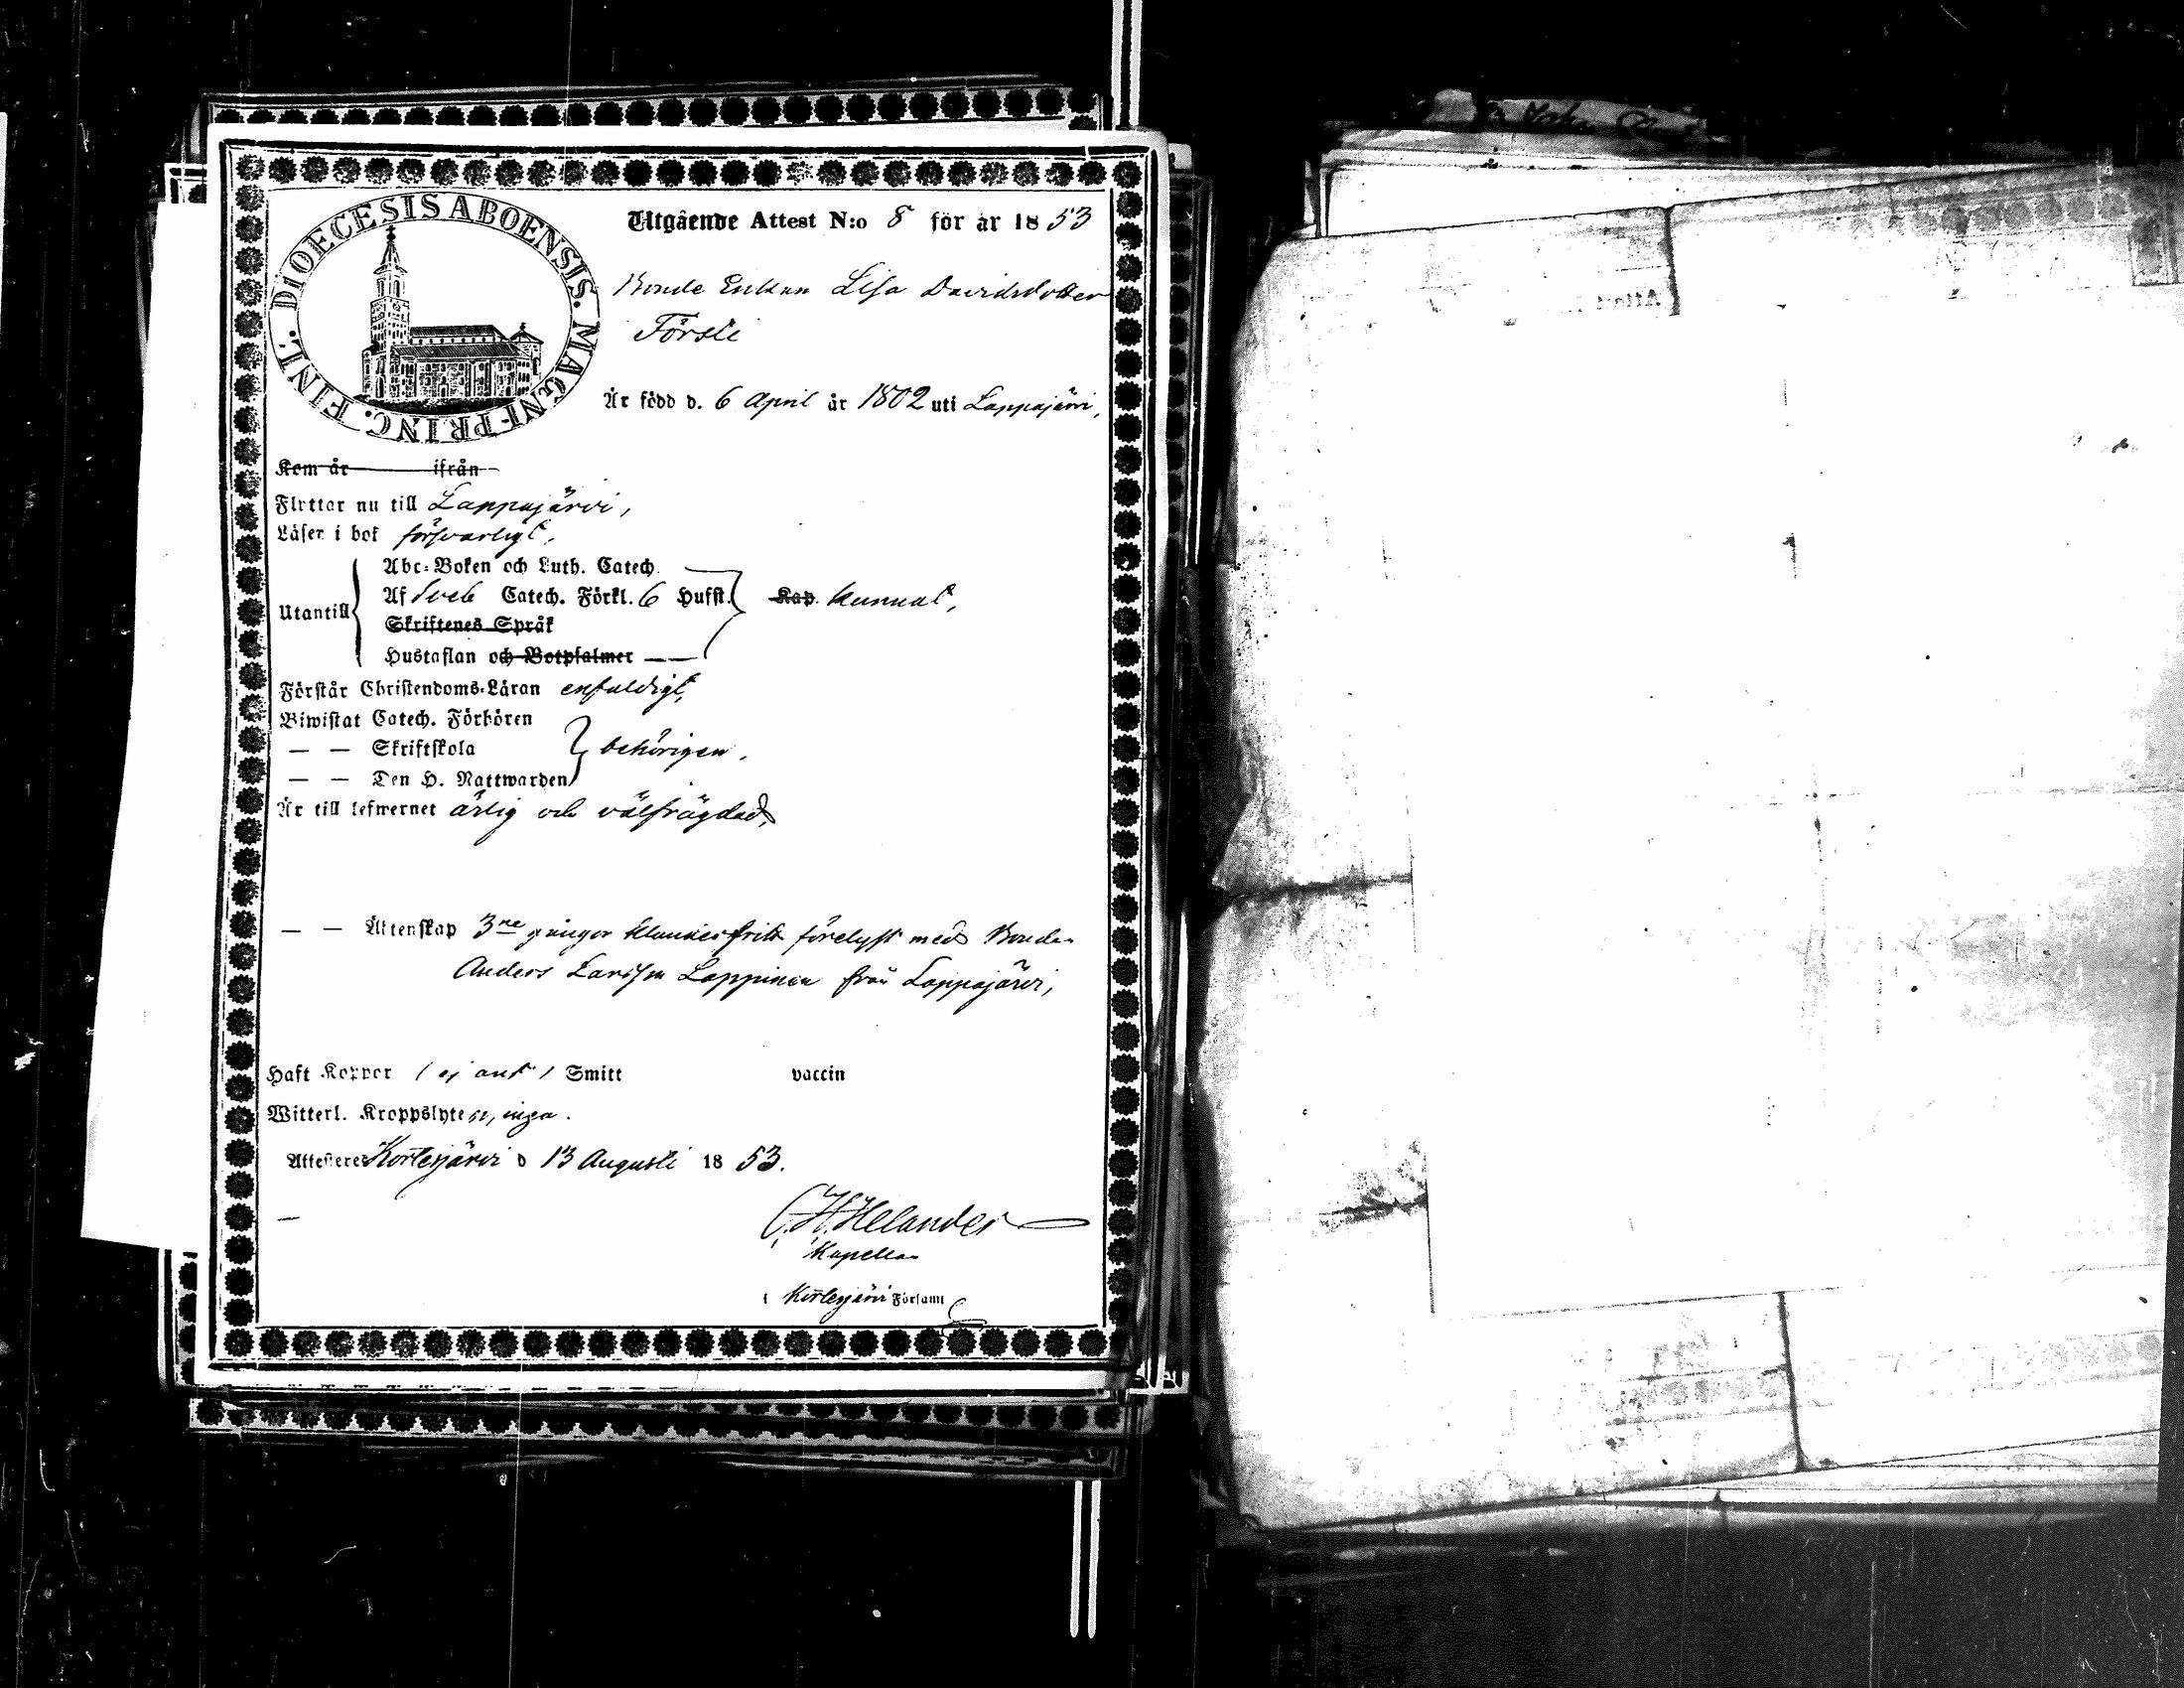 DIOECESIS ABOENSIS. MAGNI PRINC. FINL.
Utgående Attest N:o 8 för år 1853
Bonde Enkan Lisa Davidsdotter
Försti
Är född d. 6 April år 1802 uti Lappajärvi,
Kom år ifrån
Flyttar nu till Lappajärvi,
Läser i bok försvarligt,
Abc-Boken och Luth. Catech.
Utantill Af Sveb Catech. Förkl. 6 Hufst. Kap. kunnat,
Skriftenes Språk
Hustaflan och Botpsalmer
Förstår Christendoms-Läran enfaldigt,
Biwistat Catech. Förhören
— — Skriftskola behörigen.
— — Den H. Nattwarden
Är till lefwernet ärlig och välfrägdad,
— — Äktenskap 3ne gånger klanderfritt förelyst med Bonden
Anders Larsson Lappinen från Lappajärvi,
Haft Koppor (ej ant) Smitt vaccin
Witterl. Kroppslyten, inga.
Attesteres Kortesjärvi d 13 Augusti 1853.
C.H. Helander
Kapellan
i Kortesjärvi Församl